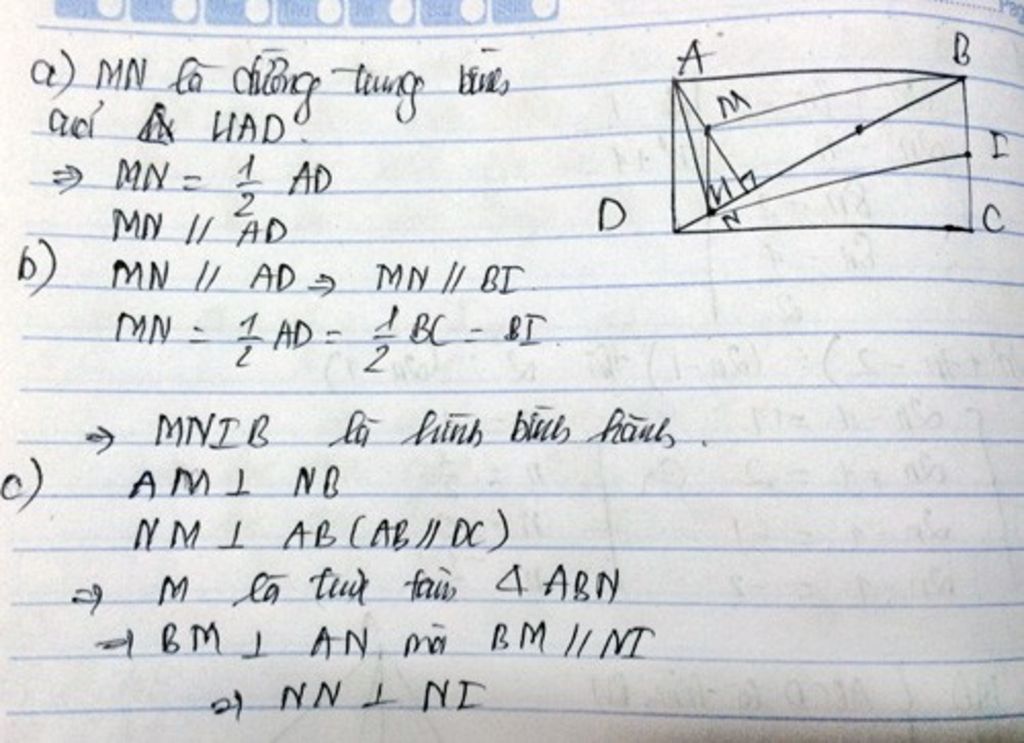 A
B
M
I
H
N
D
C
a) MN là đường trung bình
của HAD.
⇒ MN = 1/2 AD
MN // AD
b) MN // AD ⇒ MN // BI.
MN = 1/2 AD = 1/2 BC = BI.
⇒ MNIB là hình bình hành.
c) AM ⊥ NB
NM ⊥ AB (AB // DC)
⇒ M là trực tâm Δ ABN
⇒ BM ⊥ AN mà BM // NI
⇒ NN ⊥ NI